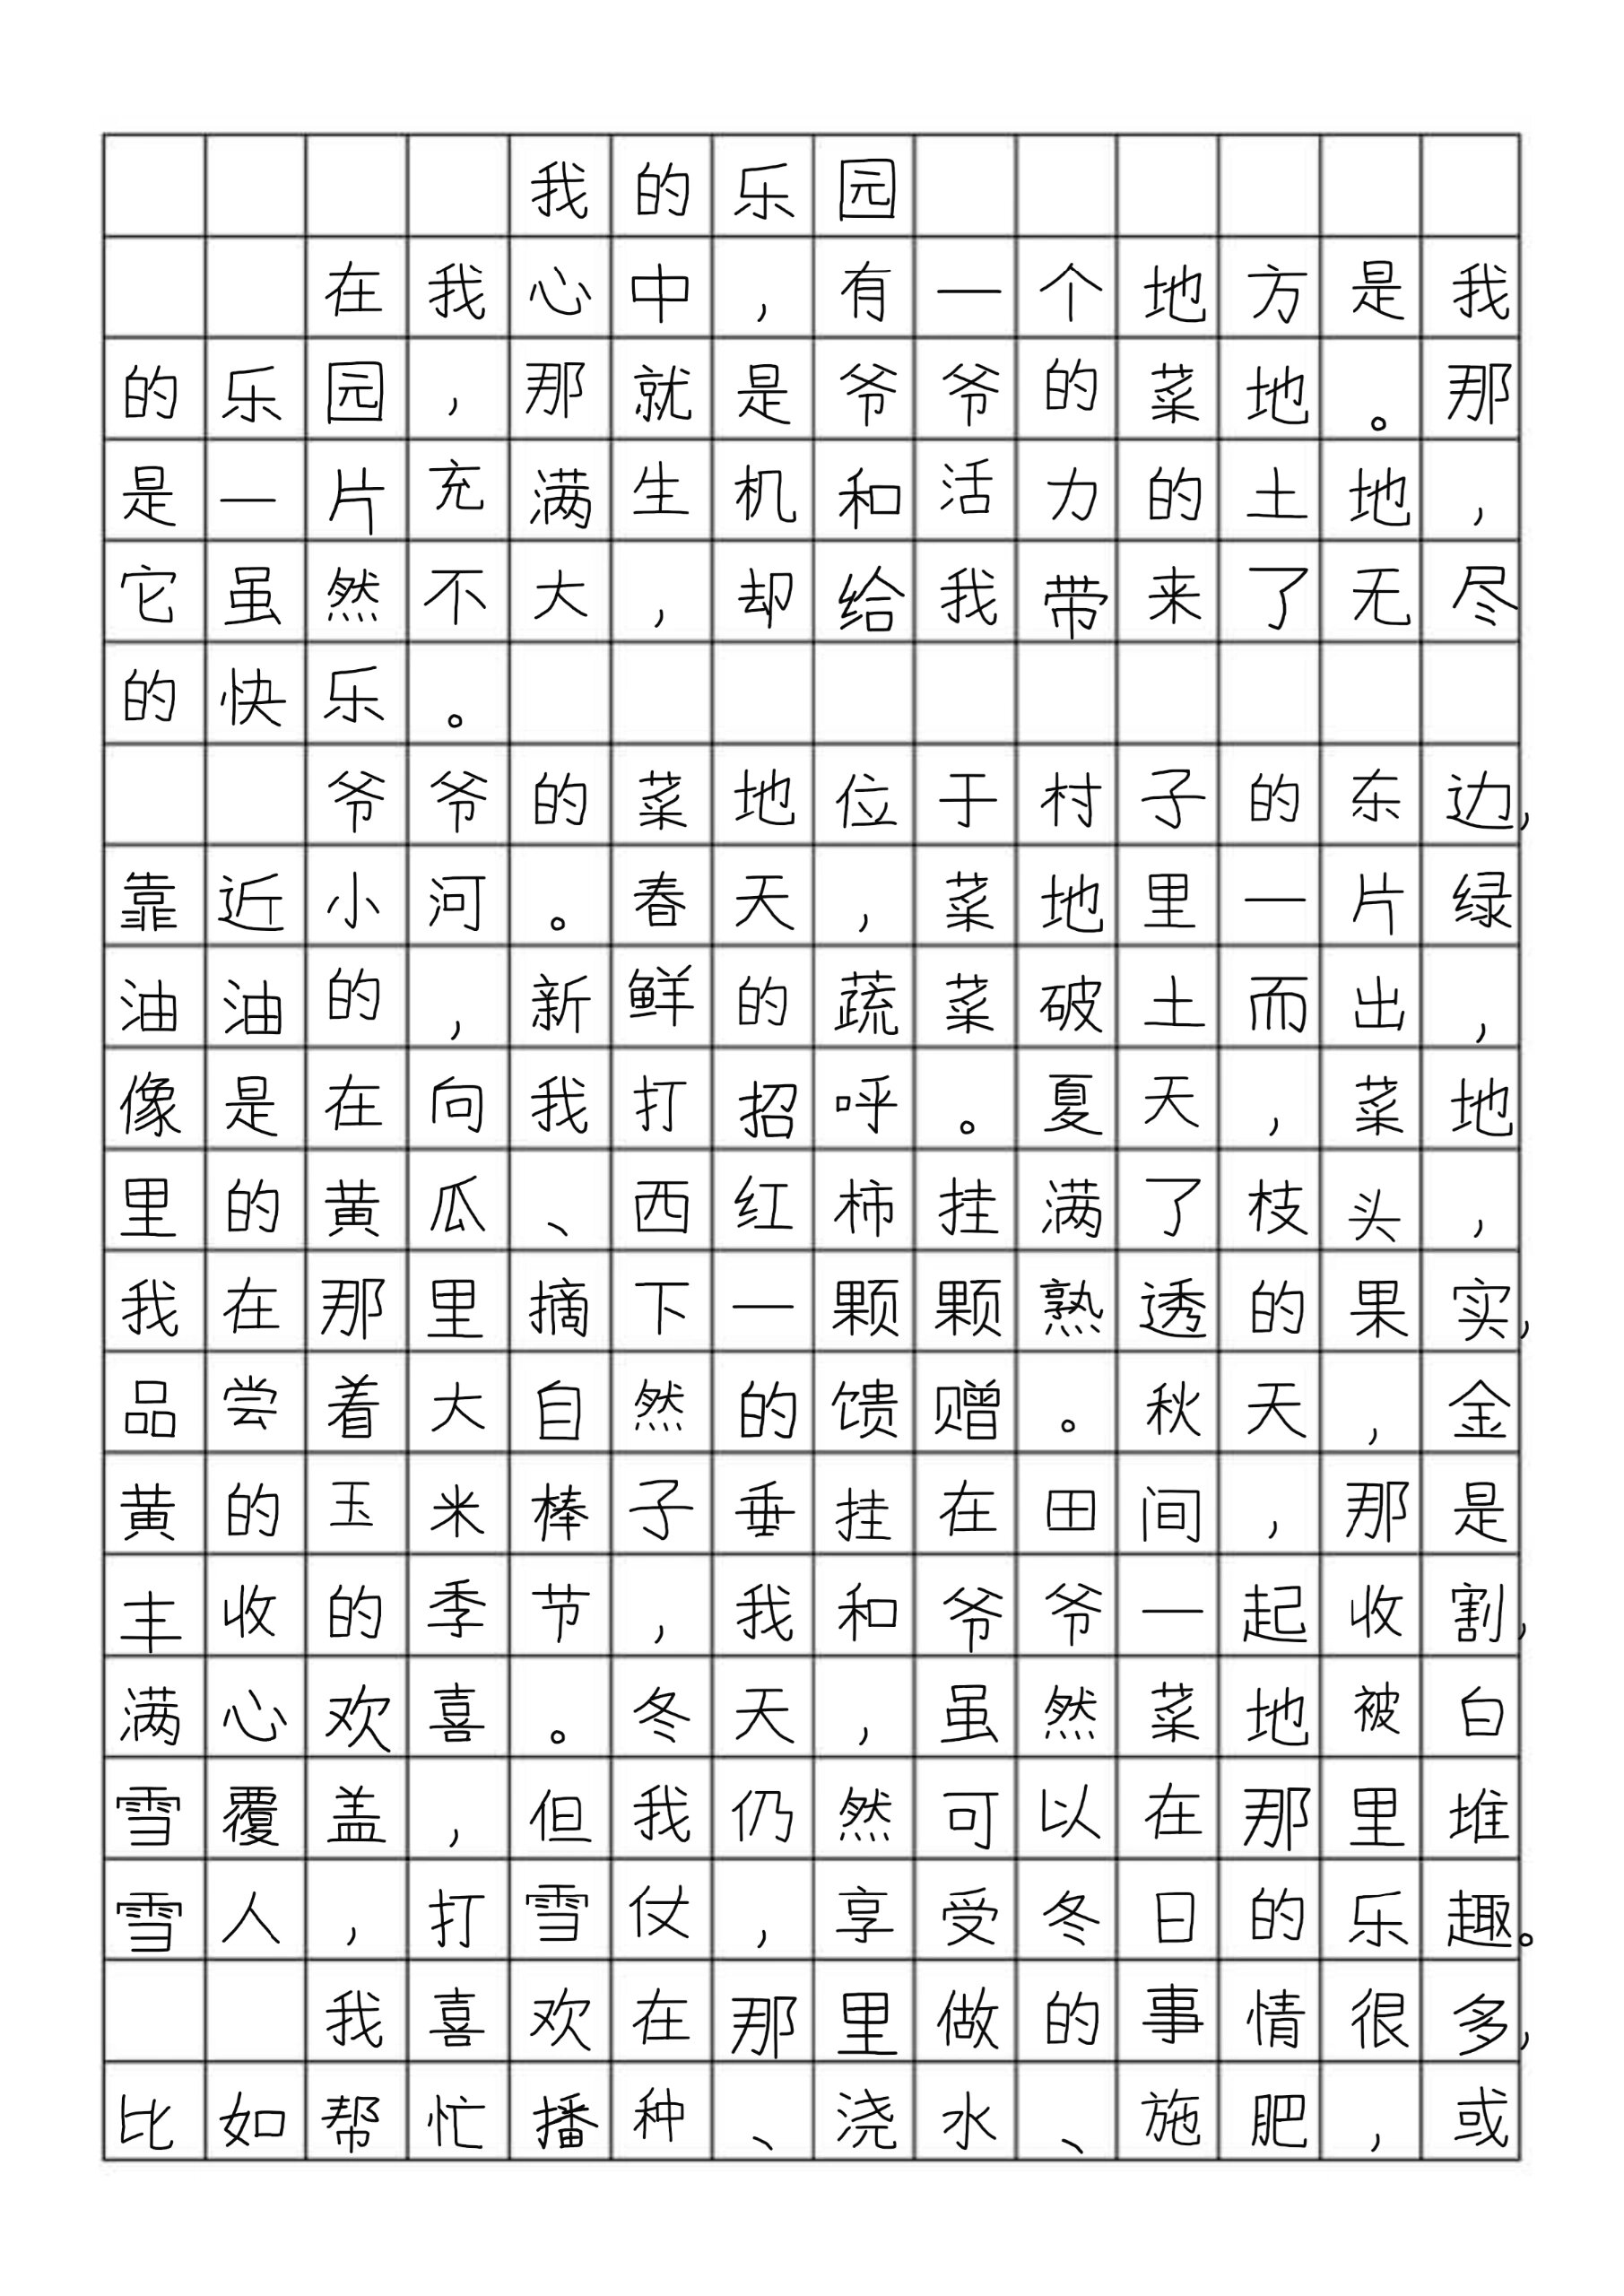 我的乐园
在我心中，有一个地方是我
的乐园，那就是爷爷的菜地。那
是一片充满生机和活力的土地，
它虽然不大，却给我带来了无尽
的快乐。
爷爷的菜地位于村子的东边，
靠近小河。春天，菜地里一片绿
油油的，新鲜的蔬菜破土而出，
像是在向我打招呼。夏天，菜地
里的黄瓜、西红柿挂满了枝头，
我在那里摘下一颗颗熟透的果实，
品尝着大自然的馈赠。秋天，金
黄的玉米棒子垂挂在田间，那是
丰收的季节，我和爷爷一起收割，
满心欢喜。冬天，虽然菜地被白
雪覆盖，但我仍然可以在那里堆
雪人，打雪仗，享受冬日的乐趣。
我喜欢在那里做的事情很多，
比如帮忙播种、浇水、施肥，或